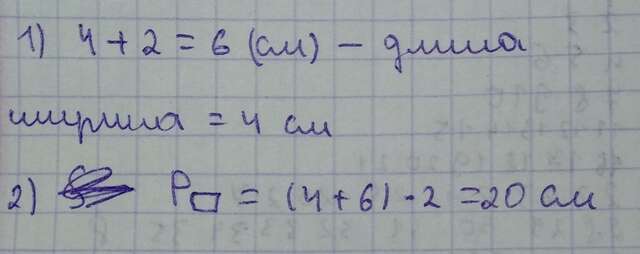 1) 4 + 2 = 6 (см) – длина
ширина = 4 см
2) P▭ = (4 + 6) · 2 = 20 см